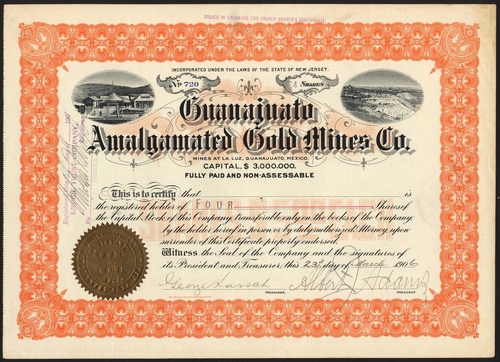 ISSUED IN EXCHANGE FOR FRENCH BEARER'S CERTIFICATE
INCORPORATED UNDER THE LAWS OF THE STATE OF NEW JERSEY.
No 720
4 SHARES
Guanajuato
Amalgamated Gold Mines Co.
MINES AT LA LUZ, GUANAJUATO, MEXICO.
CAPITAL, $ 3.000.000.
FULLY PAID AND NON-ASSESSABLE
This is to certify that is
the registered holder of FOUR Shares of
the Capital Stock of this Company, transferable only on the books of the Company
by the holder hereof in person or by duly authorized Attorney upon
surrender of this Certificate properly endorsed.
Witness the Seal of the Company and the signatures of
its President and Treasurer, this 23rd day of March 1906
TREASURER.
Albert J. Adams
PRESIDENT